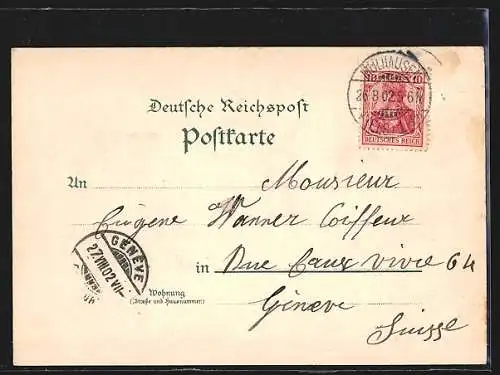 Deutsche Reichspost
Postkarte
MÜLHAUSEN
26.8.02.5-6N
DEUTSCHES REICH
An Monsieur
Eugene Wanner Coiffeur
in Rue Eaux vivre 64
Genève
Suisse
Wohnung
(Straße und Hausnummer)
GENÈVE
27.VIII.02.VII-